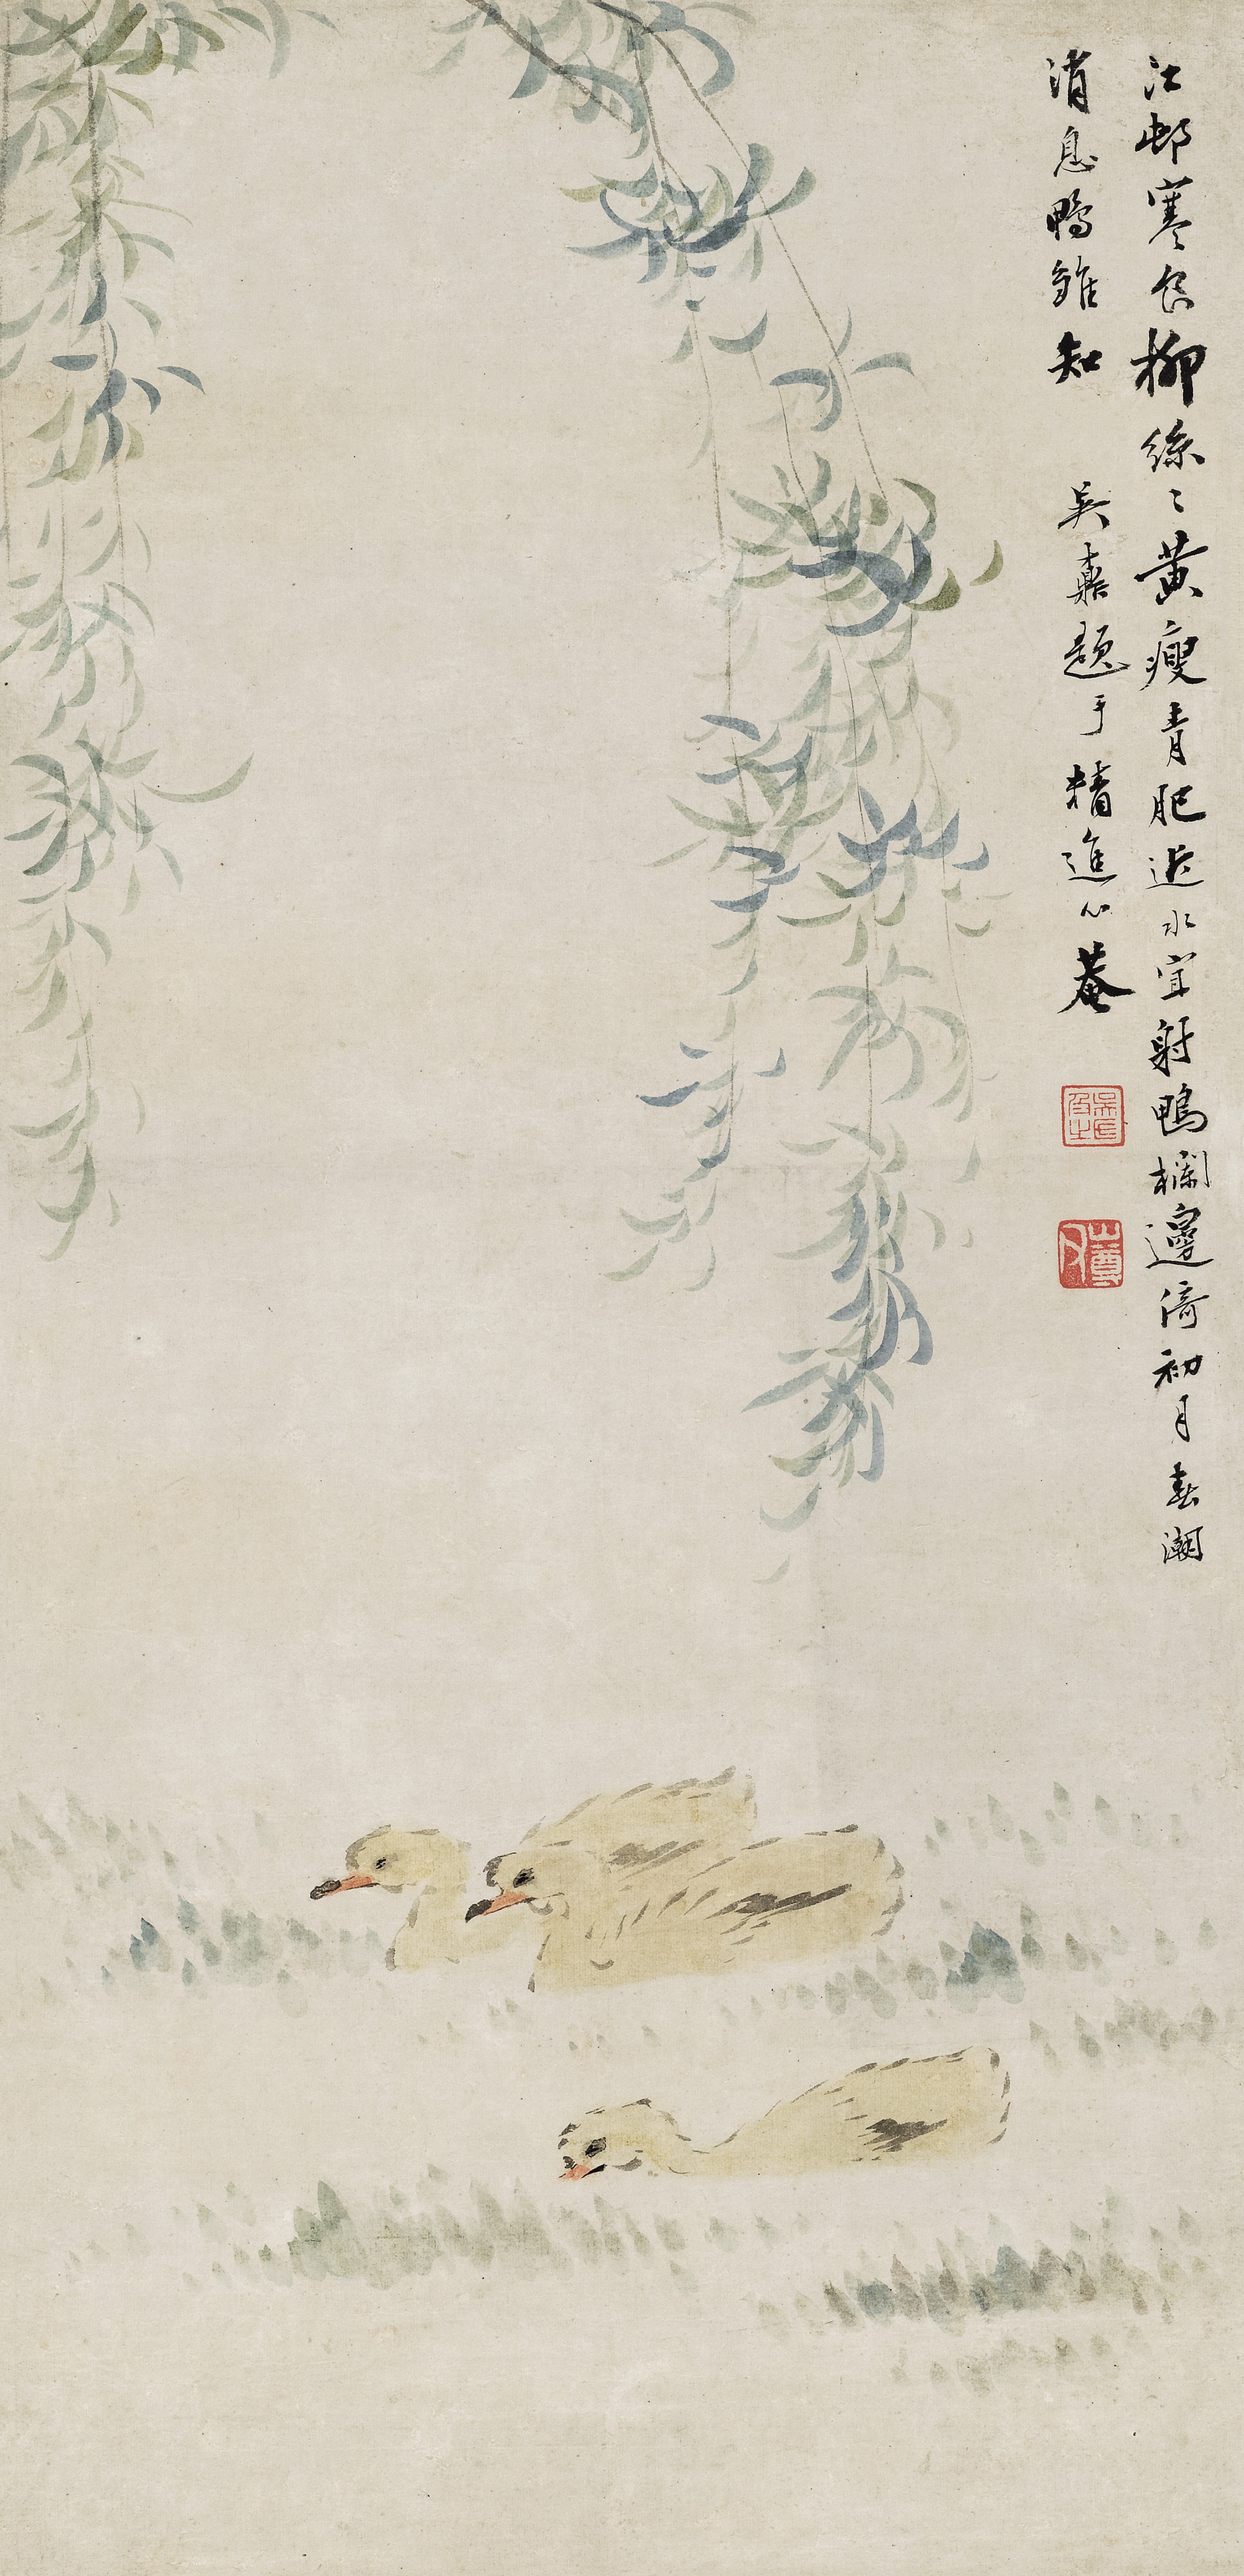 江邨寒食柳絲〻黃瘦青肥近水宜射鴨欄邊倚初月春潮
消息鴨雛知　吳鼒題于精進心菴
山尊